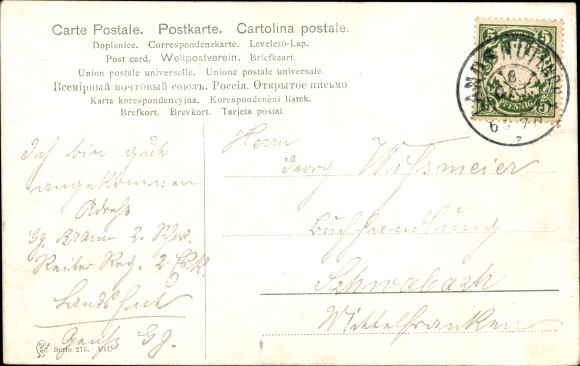 Carte Postale. Postkarte. Cartolina postale.
Dopisnice. Correspondenzkarte. Levelező-Lap.
Post card. Weltpostverein. Briefkaart.
Union postale universelle. Unione postale universale.
Всемірный почтовый союзъ. Россія. Открытое письмо.
Karta korespondencyjna. Korespondenční lístek.
Brefkort. Brevkort. Tarjeta postal.
5 5
PFENNIG
5 5
LANDSHUT
Ich bin gut
angekommen
Adreß
Gg. Braun 2. Schw.
Reiter Reg. 2. Esk.
Landshut
Gruß Gg.
Herrn
Georg Wißmeier
Buchhandlung
Schwabach
Mittelfranken
Serie 275. VII.